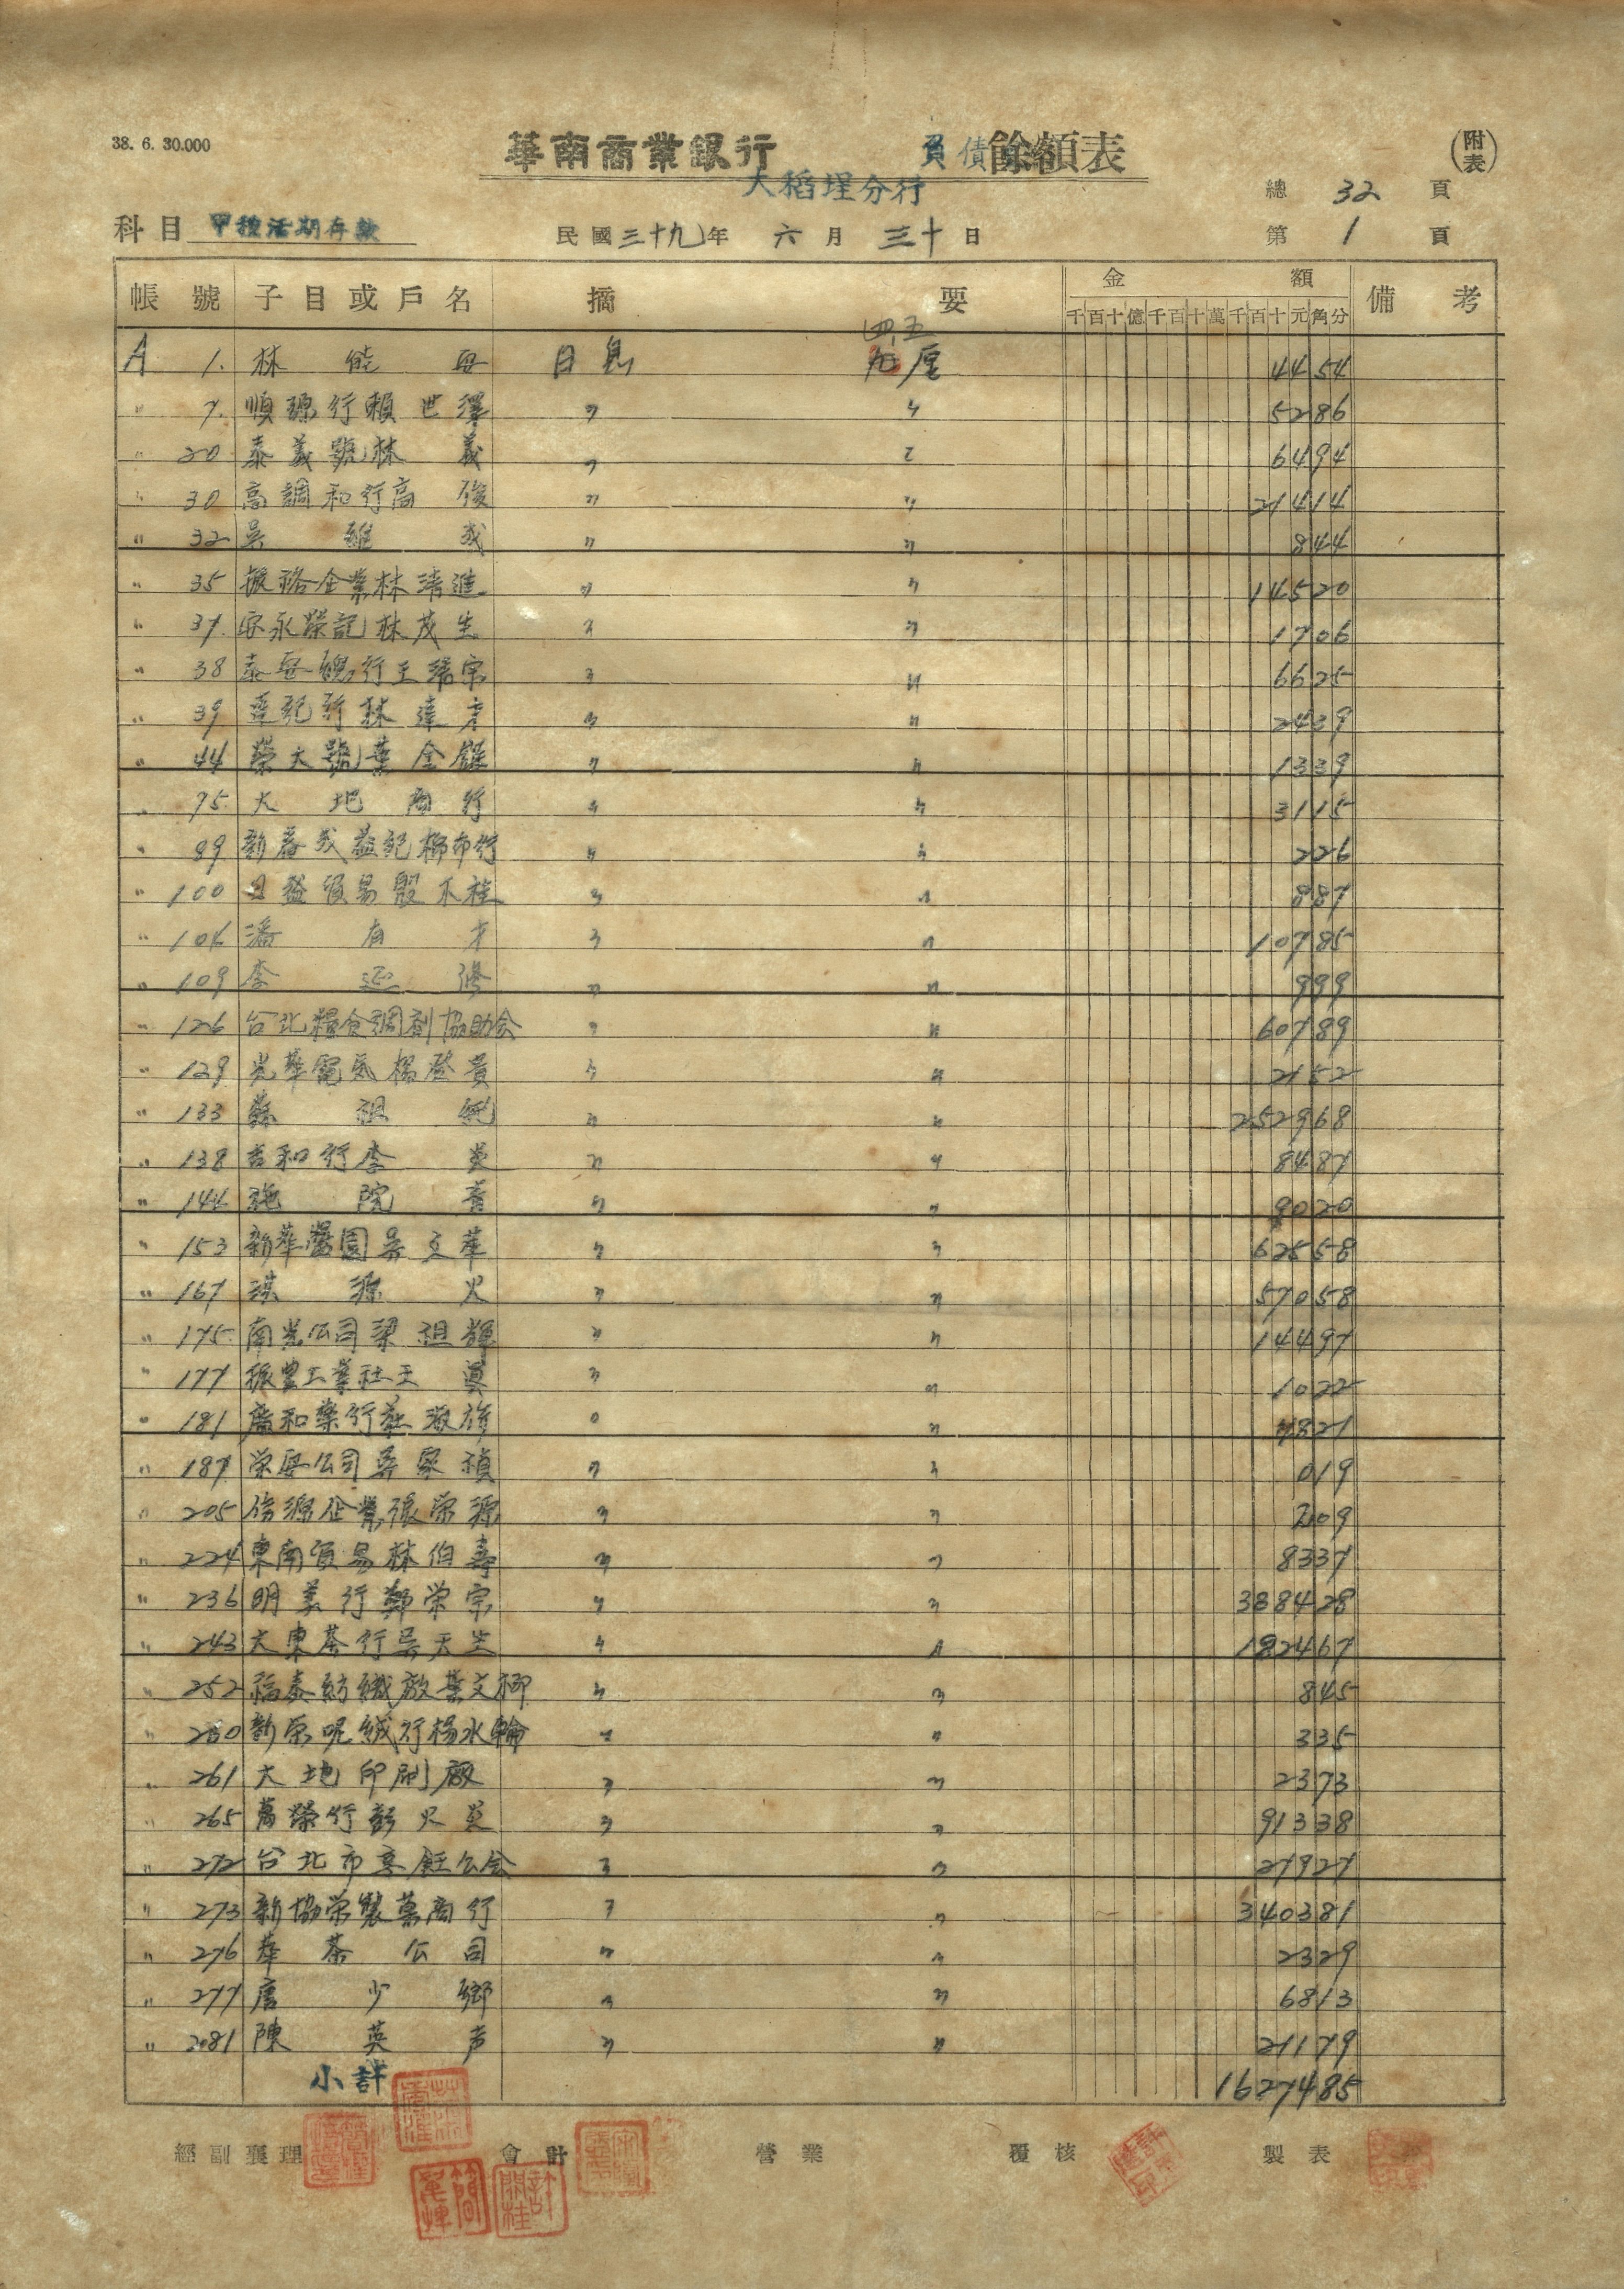 38. 6. 30.000
華南商業銀行 負債 餘額表 (附表)
大稻埕分行
總 32 頁
科目 甲種活期存款 民國三十九年 六月 三十日 第 1 頁
帳號 子目或戶名 摘要 金額 備考
千百十億千百十萬千百十元角分
四五
A 1. 林 日息 厘 4454
〃 7. 順源行賴世澤 〃 〃 5286
〃 20 泰義號林義 〃 〃 6494
〃 30 高調和行高俊 〃 〃 21414
〃 32 吳維成 〃 〃 844
〃 35 振裕企業林清進 〃 〃 14520
〃 37. 永榮記林茂生 〃 〃 1706
〃 38 泰安 行王瑞宗 〃 〃 6625
〃 39 達記行林達才 〃 〃 2439
〃 44 榮大號葉金 〃 〃 1339
〃 75. 大地商行 〃 〃 3115
〃 89 新春成益記棉布行 〃 〃 226
〃 100 日益貿易殷木桂 〃 〃 887
〃 104 潘有才 〃 〃 10785
〃 109 李延修 〃 〃 999
〃 126 台北糧食調劑協助会 〃 〃 60789
〃 129 光華電気楊登貴 〃 〃 2152
〃 133 蘇祖 〃 〃 252968
〃 138 吉和行李 〃 〃 8487
〃 144 施院 〃 〃 9020
〃 153 新華醬園吳文華 〃 〃 62558
〃 167 源火 〃 〃 57058
〃 175. 南光公司梁祖輝 〃 〃 14497
〃 177 振豊工業社王 〃 〃 1022
〃 181 廣和藥行莊 〃 〃 4821
〃 187 栄興公司 〃 〃 019
〃 205 源企業張榮源 〃 〃 209
〃 224 東南貿易林伯壽 〃 〃 8337
〃 236 明美行鄭栄宗 〃 〃 388428
〃 243 大東茶行吳天生 〃 〃 182467
〃 252 福泰紡織廠葉文柳 〃 〃 845
〃 260 新栄呢絨行楊水輪 〃 〃 335
〃 261 大地印刷廠 〃 〃 2373
〃 265 萬榮行彭火 〃 〃 91338
〃 272 台北市烹飪公会 〃 〃 27927
〃 273 新協栄製藥商行 〃 〃 340381
〃 276 華茶公司 〃 〃 2329
〃 277 唐少鄉 〃 〃 6813
〃 281 陳英声 〃 〃 21179
小計 1627485
經副襄理 會計 營業 覆核 製表